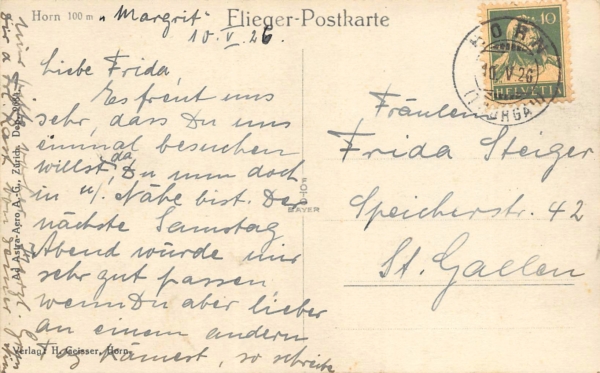 Horn 100 m
"Margrit"
10.V.26
Flieger-Postkarte
HORN
10.V.26
(THURGAU)
10
HELVETIA
Liebe Frida,
Es freut uns
sehr, dass Du uns
einmal besuchen
willst, da Du nun doch
in u/. Nähe bist. Der
nächste Samstag
Abend würde mir
sehr gut passen,
wenn Du aber lieber
an einem andern
Tag kämest, so schreibe
Fräulein
Frida Steiger
Speicherstr. 42
St. Gallen
BAYER
Ad Astra-Aero A.-G., Zürich
Verlag H. Geisser, Horn